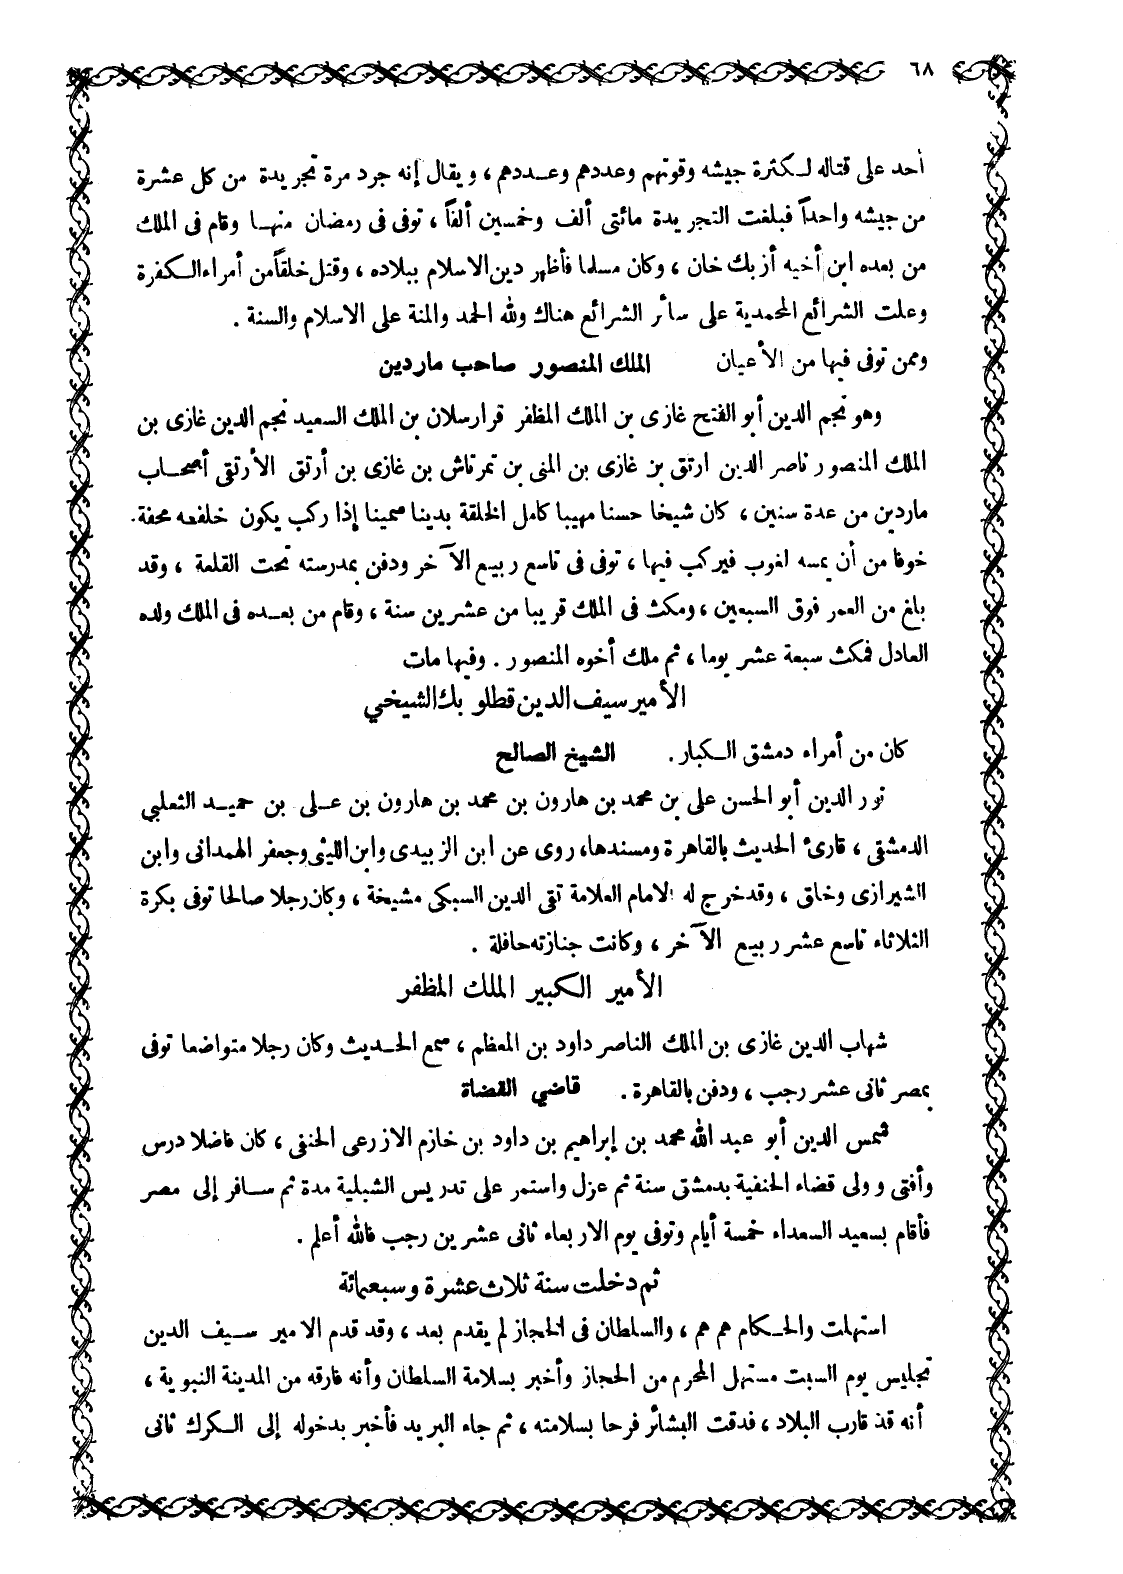 ٦٨
أحد على قتاله لـكثرة جيشه وقوتهم وعددهم وعـددهم ، ويقال إنه جرد مرة تجريدة من كل عشرة
من جيشه واحداً فبلغت التجريدة مائتى ألف وخمسين ألفاً ، توفى فى رمضان منهـا وقام فى الملك
من بعده ابن أخيه أزبك خان ، وكان مسلما فأظهر دين الاسلام ببلاده ، وقتل خلقاً من أمراء الـكفرة
وعلت الشرائع المحمدية على سائر الشرائع هناك ولله الحمد والمنة على الاسلام والسنة .
وممن توفى فيها من الأعيان الملك المنصور صاحب ماردين
وهو نجم الدين أبو الفتح غازى بن الملك المظفر قرارسلان بن الملك السعيد نجم الدين غازى بن
الملك المنصور ناصر الدين ارتق بن غازى بن المنى بن تمرتاش بن غازى بن أرتق الأرتقى أصحـاب
ماردين من عدة سنين ، كان شيخا حسنا مهيبا كامل الخلقة بدينا سمينا إذا ركب يكون خلفه محفة
خوفا من أن يمسه لغوب فيركب فيها ، توفى فى تاسع ربيع الآخر ودفن بمدرسته تحت القلعة ، وقد
بلغ من العمر فوق السبعين ، ومكث فى الملك قريبا من عشرين سنة ، وقام من بعـده فى الملك ولده
العادل فمكث سبعة عشر يوما ، ثم ملك أخوه المنصور . وفيها مات
الأمير سيف الدين قطلوبك الشيخي
كان من أمراء دمشق الـكبار . الشيخ الصالح
نور الدين أبو الحسن على بن محمد بن هارون بن محمد بن هارون بن عـلى بن حميـد الثعلبي
الدمشقى ، قارئ الحديث بالقاهرة ومسندها، روى عن ابن الزبيدى وابن الليثى وجعفر الهمدانى وابن
الشيرازى وخلق ، وقد خرج له الامام العلامة تقى الدين السبكى مشيخة ، وكان رجلا صالحا توفى بكرة
الثلاثاء تاسع عشر ربيع الآخر ، وكانت جنازته حافلة .
الأمير الكبير الملك المظفر
شهاب الدين غازى بن الملك الناصر داود بن المعظم ، سمع الحـديث وكان رجلا متواضعا توفى
بمصر ثانى عشر رجب ، ودفن بالقاهرة . قاضي القضاة
شمس الدين أبو عبد الله محمد بن إبراهيم بن داود بن خازم الازرعى الحنفى ، كان فاضلا درس
وأفتى وولى قضاء الحنفية بدمشق سنة ثم عزل واستمر على تدريس الشبلية مدة ثم سـافر إلى مصر
فأقام بسعيد السعداء خمسة أيام وتوفى يوم الاربعاء ثانى عشرين رجب فالله أعلم .
ثم دخلت سنة ثلاث عشرة وسبعمائة
استهلت والحـكام هم هم ، والسلطان فى الحجاز لم يقدم بعد ، وقد قدم الامير سـيف الدين
تجليس يوم السبت مستهل المحرم من الحجاز وأخبر بسلامة السلطان وأنه فارقه من المدينة النبوية ،
أنه قد قارب البلاد ، فدقت البشائر فرحا بسلامته ، ثم جاء البريد فأخبر بدخوله إلى الـكرك ثانى